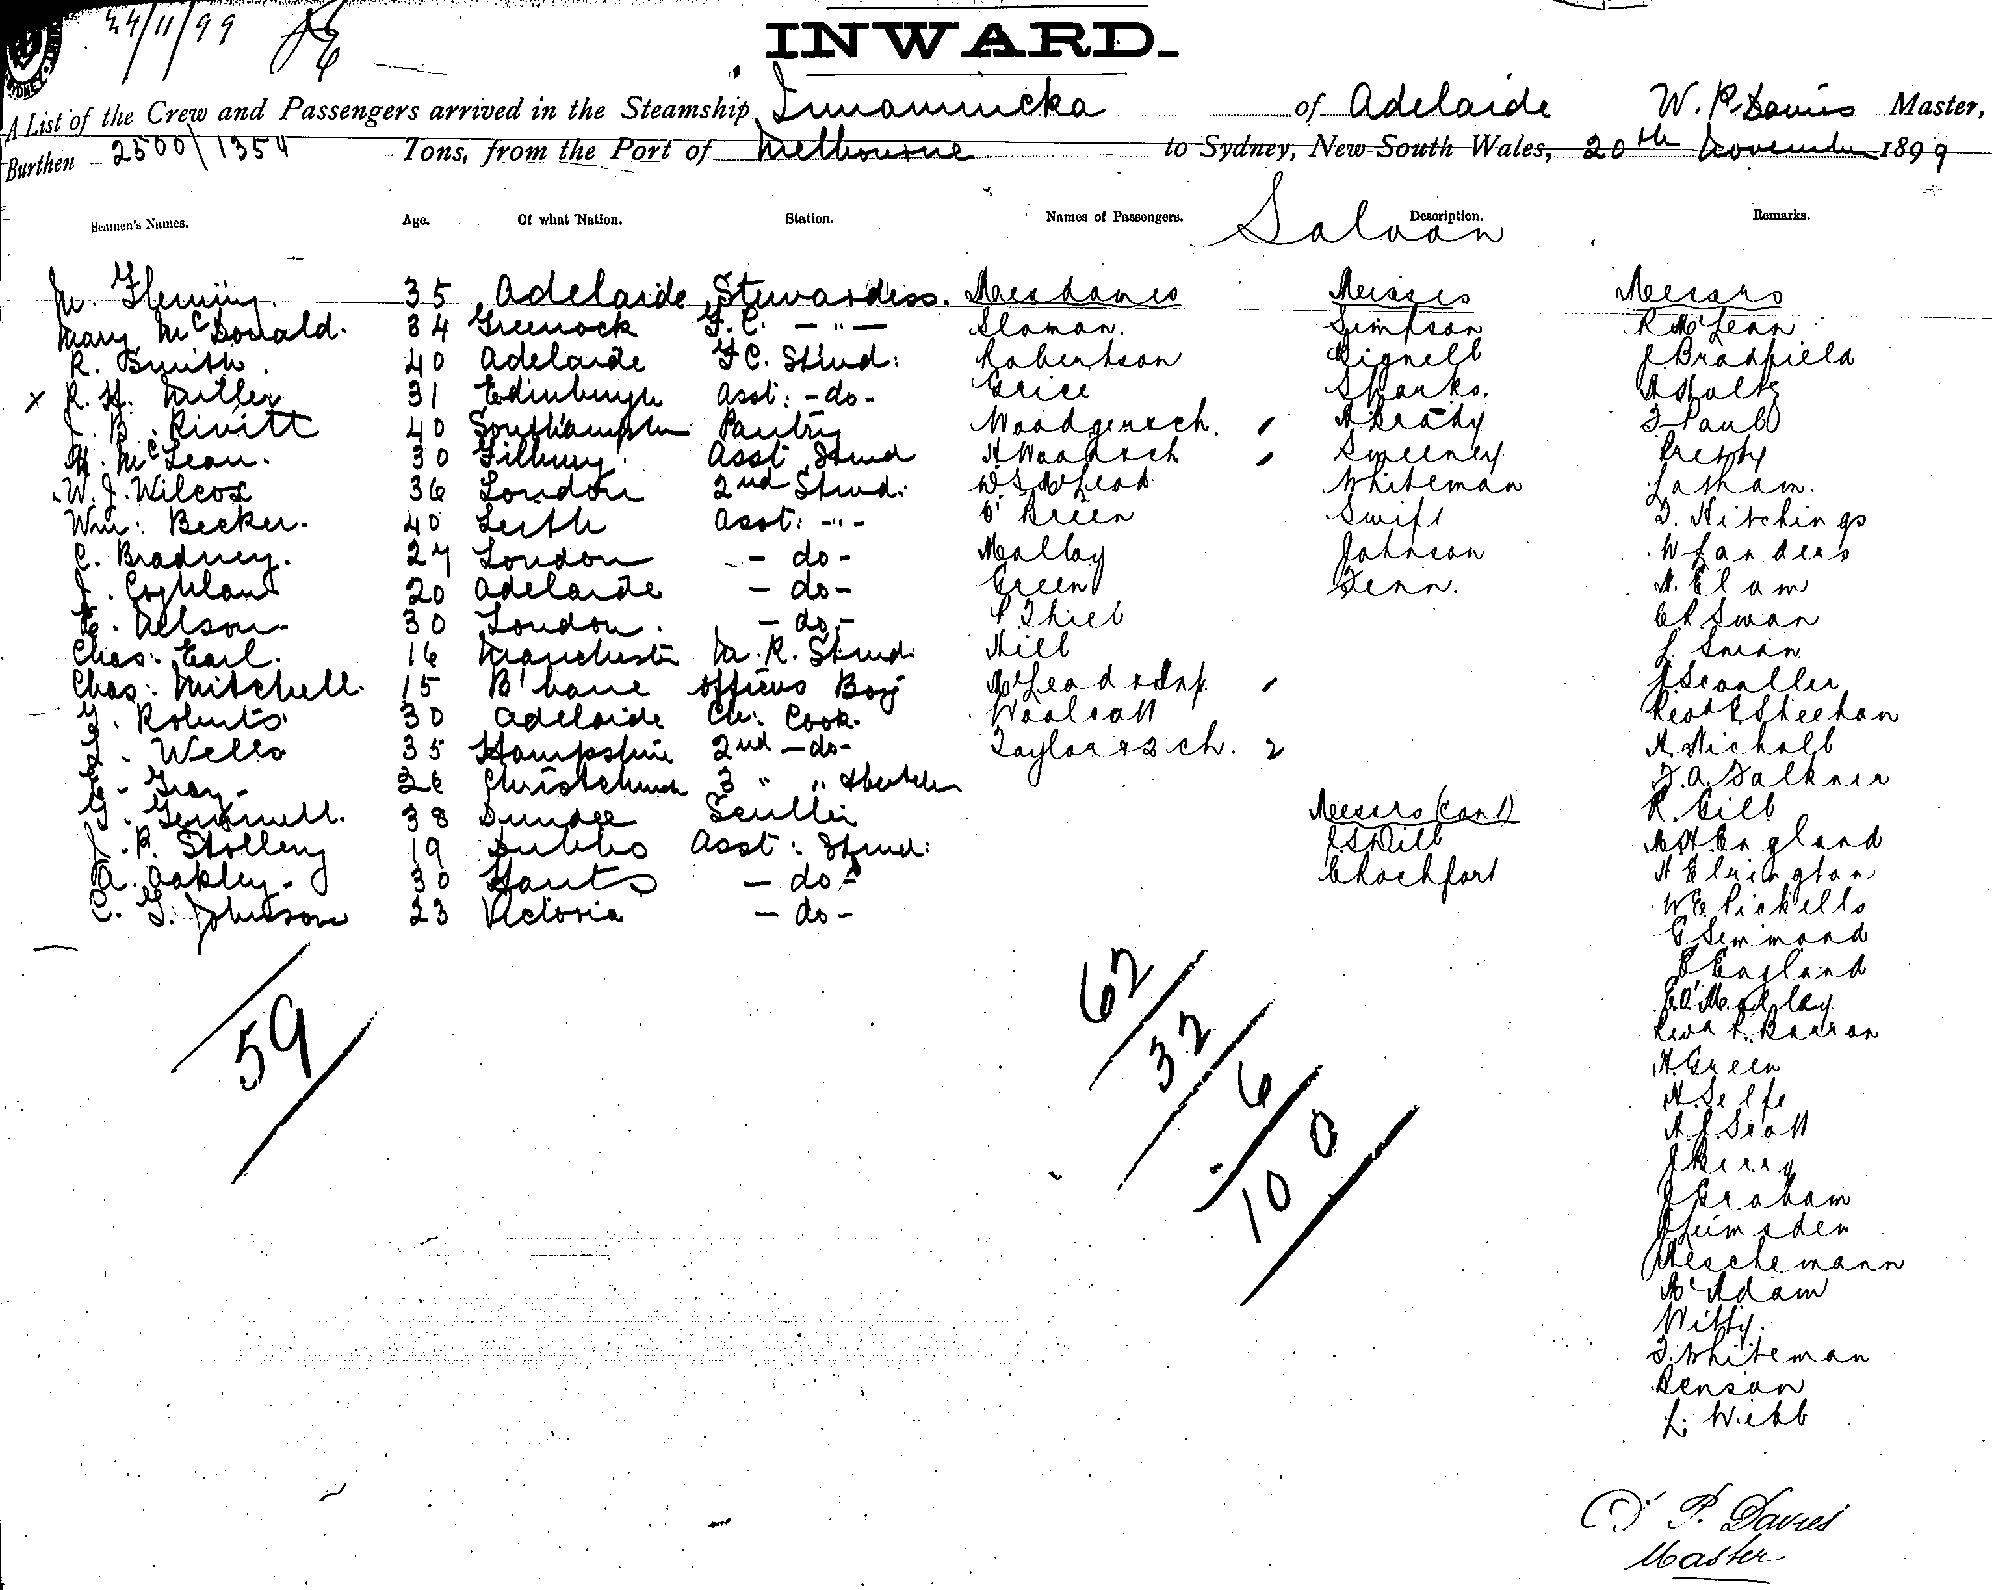 24/11/99
INWARD.
A List of the Crew and Passengers arrived in the Steamship Innamincka of Adelaide W. P. Davies Master,
Burthen 2500/1354 Tons, from the Port of Melbourne to Sydney, New South Wales, 20th November 1899
Seamen's Names. Age. Of what Nation. Station. Names of Passengers. Description. Remarks.
Saloon
M. Fleming. 35 Adelaide Stewardess. Mesdames Misses Messrs
Mary McDonald. 34 Greenock F.C. — " — Sloman. Simpson R McLean
R. Smith. 40 Adelaide F.C. Stwd: Robertson Bignell J Bradfield
x R. H. Miller 31 Edinburgh Asst: - do - Grice Sparks. A Holtz
J. B. Rivitt 40 Southampton Pantry Woodgersch. A Beaty F Paul
H. McLean. 30 Tilbury. Asst Stwd Sweeney Pretty
W. J. Wilcox 36 London 2nd Stwd: Whiteman Latham.
Wm: Becker. 40 Leith Asst: - " - O'Breen Swift F. Hitchings
C. Bradney. 27 London - do - Malloy Johnson W Landers
J. Coghlan 20 Adelaide - do - Green Fenn. A. Elam
E. Nelson 30 London. - do - P Thiel E P Swan
Chas: Earl. 16 Manchester M. R. Stwd. Hill L. Swan
Chas: Mitchell. 15 B'bane Officers Boy McLeod & Inf. J Scouller
G. Roberts 30 Adelaide Ch: Cook. Woolcott Revd P Sheehan
J. Wells 35 Hampshire 2nd - do - Taylor & 2 ch. 2 A Nicholl
E. Gray - 26 Christchurch 3 " " F. A. Falkner
G. Gemmell. 38 Dundee Scullin Messrs (cont) R. Gill
J. P. Stolling 19 Dubbo Asst: Stwd: A H England
A. Oakley - 30 Hants - do - C Rochfort A Elrington
C. G. Johnson 23 Victoria - do - W E Pickells
E Simmond
E England
Revd P. Barron
A. Green
A. Selfe
A J Scott
J Berry
J Graham
J Lumsden
Aeschemann
McAdam
Witty.
F. Whiteman
Benson
L. Webb
59
62
32
6
100
W. P. Davies
Master